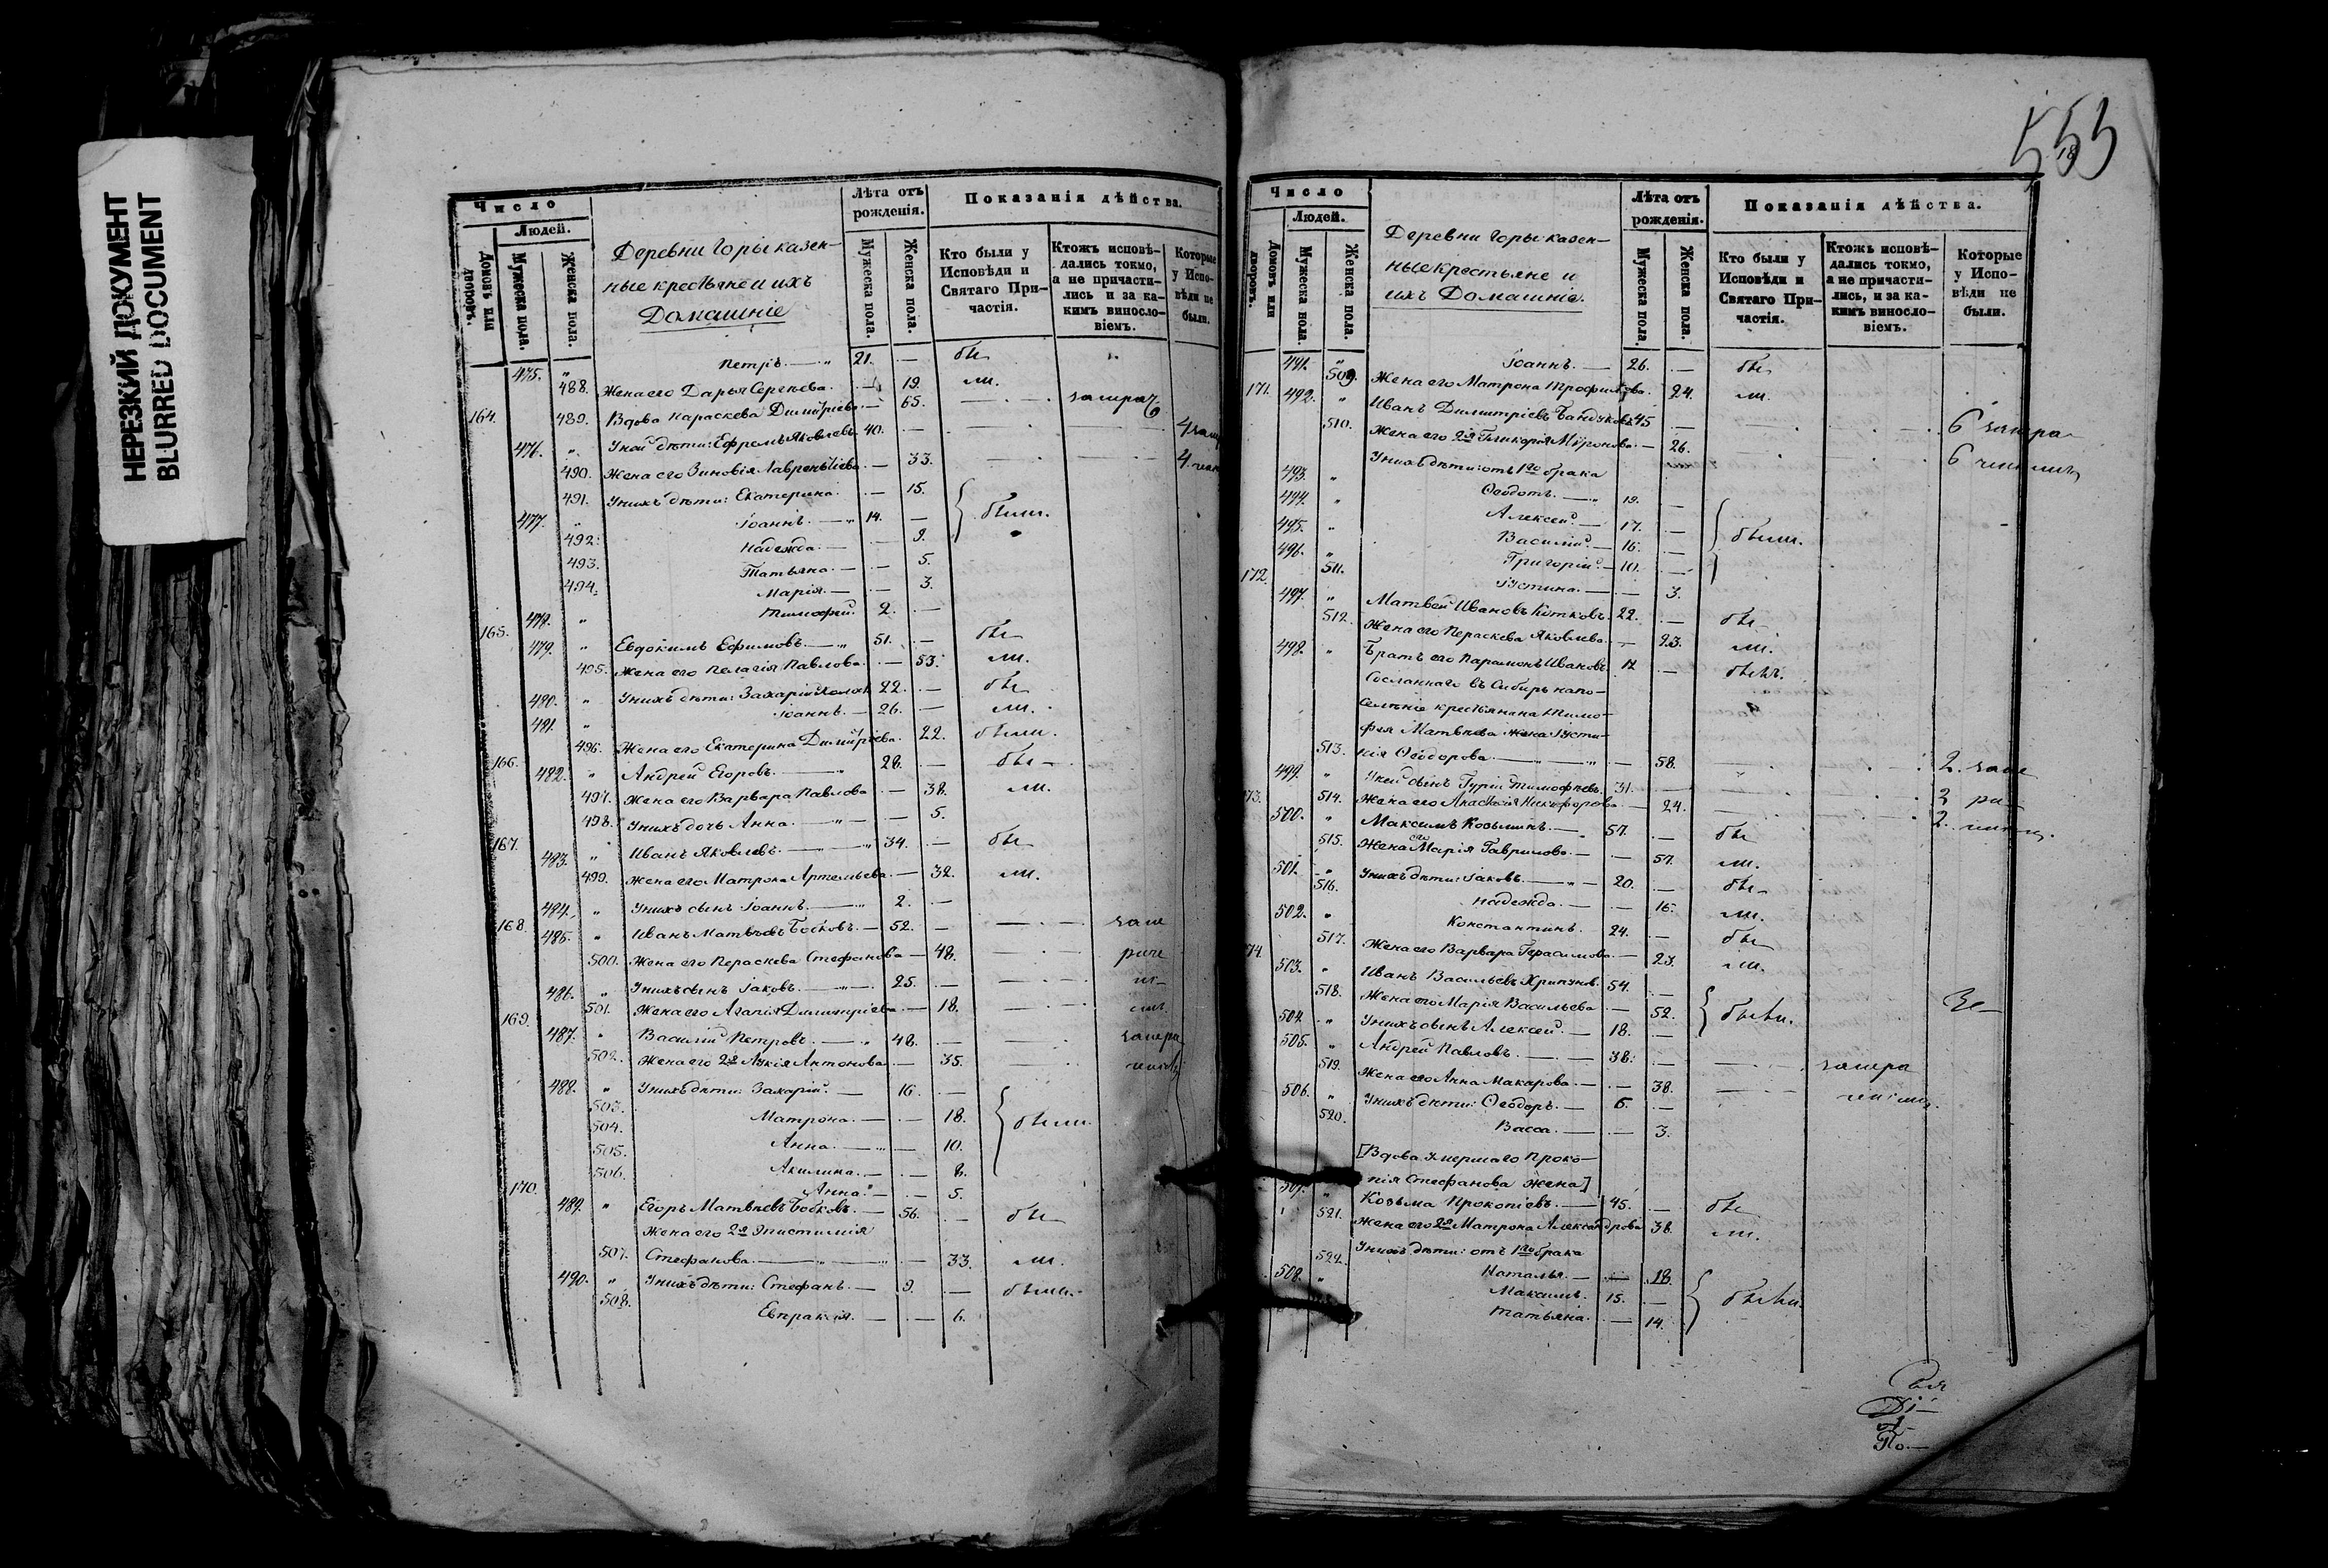 НЕРЕЗКИЙ ДОКУМЕНТ
BLURRED DOCUMENT
Число
Людей.
Домовъ или дворовъ.
Мужеска пола.
Женска пола.
Деревни Горы казен-
ные крестьяне и ихъ
Домашніе
Лѣта отъ рожденія.
Мужеска пола.
Женска пола.
Показанія дѣйства.
Кто были у Исповѣди и Святаго Причастія.
Ктожъ исповѣдались токмо, а не причастились и за какимъ винословіемъ.
Которые у Исповѣди не были.
475. " Петръ. — " 21. — бы
488. Жена его Дарья Сергеева. — 19. ли.
164. 489. Вдова Параскева Димитріева — 65.
476. " У ней дѣти: Ефремъ Яковлевъ. 40. —
490. Жена его Зиновія Лаврентіева — 33.
491. У нихъ дѣти: Екатерина. — 15.
477. " Іоаннъ. — " 14. — были.
492. Надежда. — 9.
493. Татьяна. — 5.
494. Марія. — 3.
478. " Тимофей. 2. —
165. 479. " Евдокимъ Ефимовъ. — " 51. — бы
495. Жена его Пелагія Павлова. — 53. ли.
480. " У нихъ дѣти: Захарій 22. — бы
481. " Іоаннъ. — 26. — ли.
496. Жена его Екатерина Димитріева. 22. были.
166. 482. " Андрей Егоровъ. — " 28. — бы
497. Жена его Варвара Павлова — 38. ли.
498. У нихъ дочь Анна. — " — 5.
167. 483. " Иванъ Яковлевъ. — " 34. — бы
499. Жена его Матрона Артемьева. — 32. ли.
484. " У нихъ сынъ Іоаннъ. — " 2. —
168. 485. " Иванъ Матвѣевъ Бобковъ. — 52. —
500. Жена его Пераскева Стефанова — 48.
486. " У нихъ сынъ Іаковъ. — " 25. —
501. Жена его Агапія Димитріева — 18.
169. 487. " Василій Петровъ. — " 48. —
502. Жена его 2я Лукія Антонова — 35.
488. " У нихъ дѣти: Захарій. — 16. —
503. Матрона. — 18. были.
504. Анна. — " — 10.
505. Акилина. — 8.
506. Анна. — 5.
170. 489. " Егоръ Матвѣевъ Бобковъ. — 56. — бы
Жена его 2я Епистимія
507. Стефанова. — " — 33. ли.
490. " У нихъ дѣти: Стефанъ. — 9. — были.
508. Евпраксія. — 6.
555
Число
Людей.
Домовъ или дворовъ.
Мужеска пола.
Женска пола.
Деревни Горы казен-
ные крестьяне и
ихъ Домашніе.
Лѣта отъ рожденія.
Мужеска пола.
Женска пола.
Показанія дѣйства.
Кто были у Исповѣди и Святаго Причастія.
Ктожъ исповѣдались токмо, а не причастились, и за какимъ винословіемъ.
Которые у Исповѣди не были.
491. " Іоаннъ. — 26. — бы
509. Жена его Матрона Трофимова. 24. ли.
171. 492. " Иванъ Димитріевъ 45 —
510. Жена его 2я Гликерія Миронова. — 26.
У нихъ дѣти: отъ 1го брака
493. " Ѳеодотъ. — " 19. —
494. " Алексей. — 17. —
495. " Василій. — 16. — были.
496. " Григорій. — 10. —
511. Іустина. — 3.
172. 497. " Матвей Ивановъ Котковъ. 22. — бы
512. Жена его Пераскева Яковлева. — 23. ли.
498. " Братъ его Парамонъ Ивановъ. 12 — былъ.
Сосланнаго въ Сибирь на по-
селѣніе крестьянина Тимо-
фея Матвѣева жена Іусти-
513. нія Ѳеодорова. — " — 58.
499. " У ней сынъ Гурій Тимофѣевъ. 31. —
514. Жена его Анастасія Никифорова — 24.
173. 500. " Максимъ Козьминъ. — " 57. — бы
515. Жена его Марія Гаврилова. — 57. ли.
501. " У нихъ дѣти: Іаковъ. — " 20. — бы
516. Надежда. — 16. ли.
502. " Константинъ. 24. — бы
517. Жена его Варвара Герасимова. — 23. ли.
174. 503. " Иванъ Васильевъ Хрипуновъ. 54. —
518. Жена его Марія Васильева — 52. были.
504. " У нихъ сынъ Алексей. — 18. —
505. " Андрей Павловъ. — 38. —
519. Жена его Анна Макарова. — 38.
506. " У нихъ дѣти: Ѳеодоръ. — 6. —
520. Васса. — 3.
[Вдова умершаго Проко-
пія Стефанова жена]
507. " Козьма Прокопіевъ. — 45. — бы
521. Жена его 2я Матрона Александрова 38. ли.
У нихъ дѣти: отъ 1го брака
522. Наталья. — 18.
508. " Максимъ. 15. — были.
Татьяна. — 14.